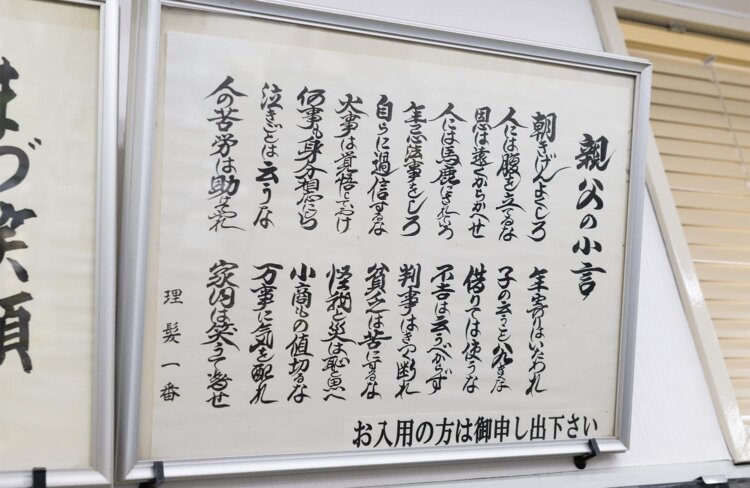 親父の小言
朝きげんよくしろ
人には腹を立てるな
恩は遠くからかへせ
人には馬鹿にされていろ
年忌法事をしろ
自らに過信するな
火事は覚悟しておけ
何事も身分相応にしろ
泣きごとは云うな
人の苦労は助けてやれ
年寄りはいたわれ
子の云うこと八九きくな
借りては使うな
不吉は云うべからず
判事はきつく断れ
貧乏は苦にするな
怪我と災は恥と思へ
小商もの値切るな
万事に気を配れ
家内は笑うて暮せ
理髪一番
お入用の方は御申し出下さい
まづ笑顔